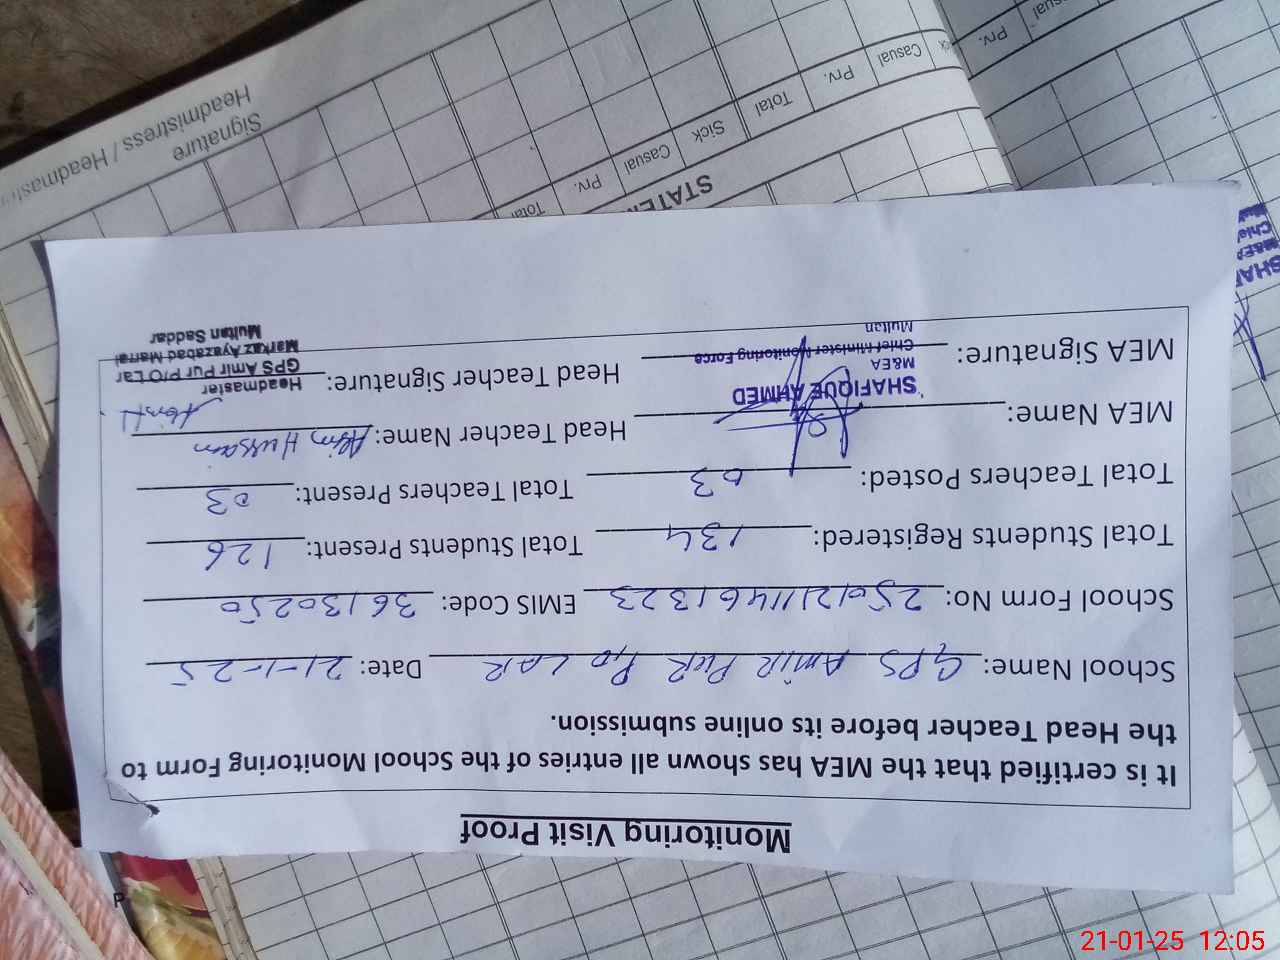 Monitoring Visit Proof
It is certified that the MEA has shown all entries of the School Monitoring Form to
the Head Teacher before its online submission.
School Name: GPS AMIR PUR P/O LAR Date: 21-1-25
School Form No: 25012111461323 EMIS Code: 36130250
Total Students Registered: 134 Total Students Present: 126
Total Teachers Posted: 03 Total Teachers Present: 03
MEA Name: Head Teacher Name: Hussain
SHAFIQUE AHMED
M&EA
Chief Minister Monitoring Force
Multan
MEA Signature: Head Teacher Signature:
Headmaster
GPS Amir Pur P/O Lar
Markaz Ayazabad Marral
Multan Saddar
STATEM
Total Prv. Casual Sick Total Prv. Casual
Prv.
Signature
Headmistress / Headmast
21-01-25 12:05